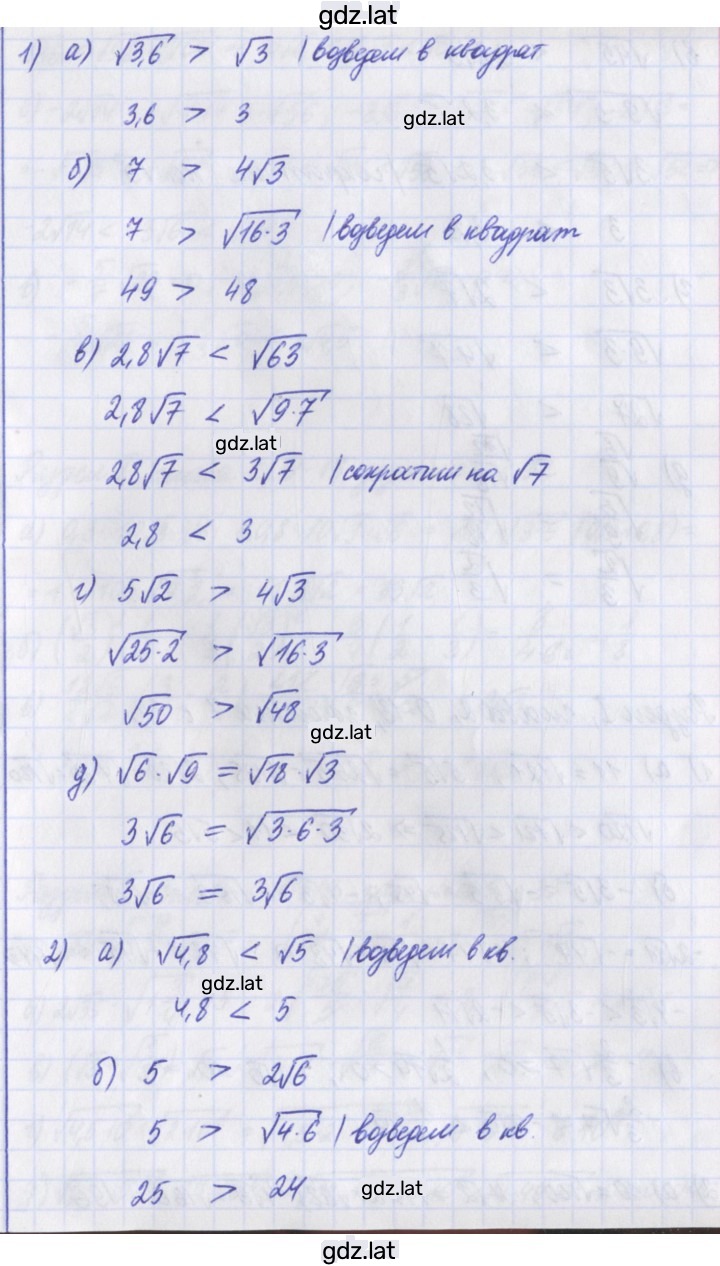 gdz.lat
1) а) √3,6 > √3 | возведем в квадрат
3,6 > 3 gdz.lat
б) 7 > 4√3
7 > √16·3 | возведем в квадрат
49 > 48
в) 2,8√7 < √63
2,8√7 < √9·7
gdz.lat
2,8√7 < 3√7 | сократим на √7
2,8 < 3
г) 5√2 > 4√3
√25·2 > √16·3
√50 > √48
gdz.lat
д) √6·√9 = √18·√3
3√6 = √3·6·3
3√6 = 3√6
2) а) √4,8 < √5 | возведем в кв.
gdz.lat
4,8 < 5
б) 5 > 2√6
5 > √4·6 | возведем в кв.
25 > 24 gdz.lat
gdz.lat